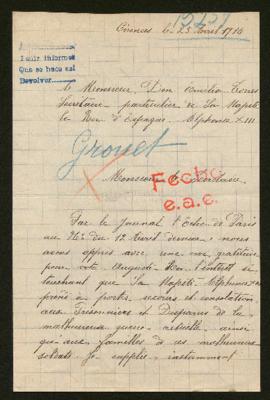 13451
Cirences le 23 Avril 1916
Pedir informes
Que se haga así
Devolver
A Monsieur Don Emilio Torres
Secrétaire particulier de Sa Majesté
le Roi d'Espagne Alphonse XIII
Grouet
Monsieur le Secrétaire
Fecho
e.a.e.
Par le journal l'Echo de Paris
au No du 12 Avril dernier nous
avons appris avec une vive gratitude
pour votre Auguste Roi l'intérêt si
touchant que Sa Majesté Alphonse XIII
prend à porter secours et consolation
aux Prisonniers et Disparus de la
malheureuse guerre actuelle ainsi
qu'aux familles de ces malheureux
soldats. Je supplie instamment